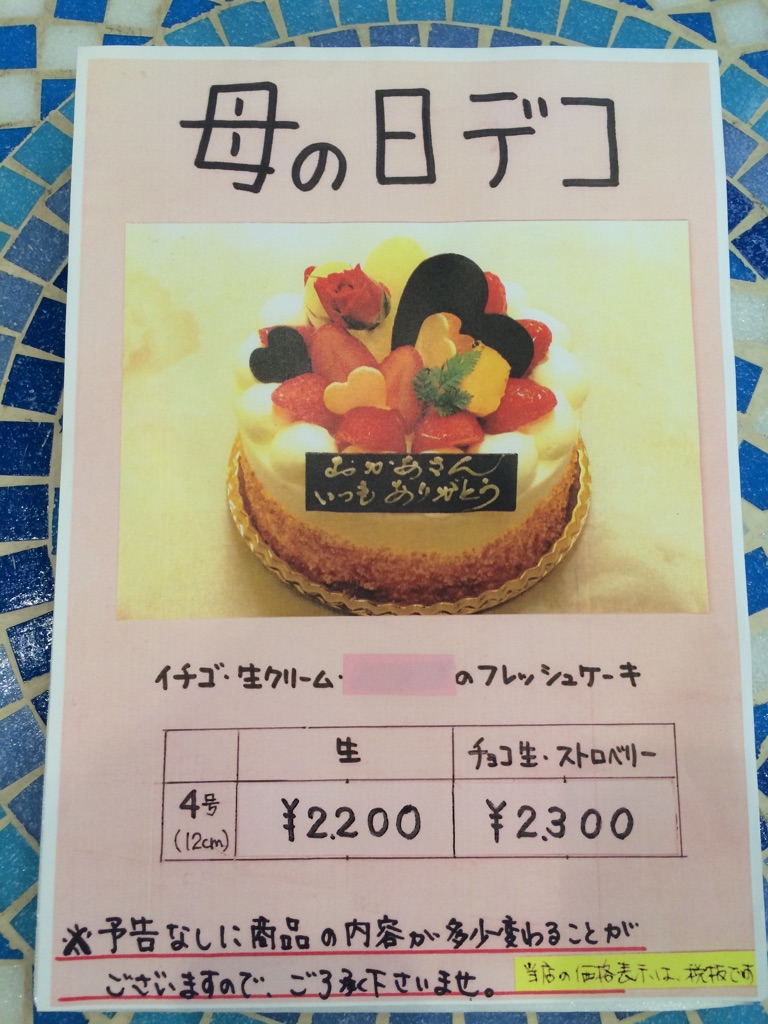 母の日デコ
おかあさん
いつもありがとう
イチゴ・生クリーム・のフレッシュケーキ
生 チョコ生・ストロベリー
4号 ¥2.200 ¥2.300
(12cm)
※予告なしに商品の内容が多少変わることが
ございますので、ご了承下さいませ。
当店の価格表示は、税抜です